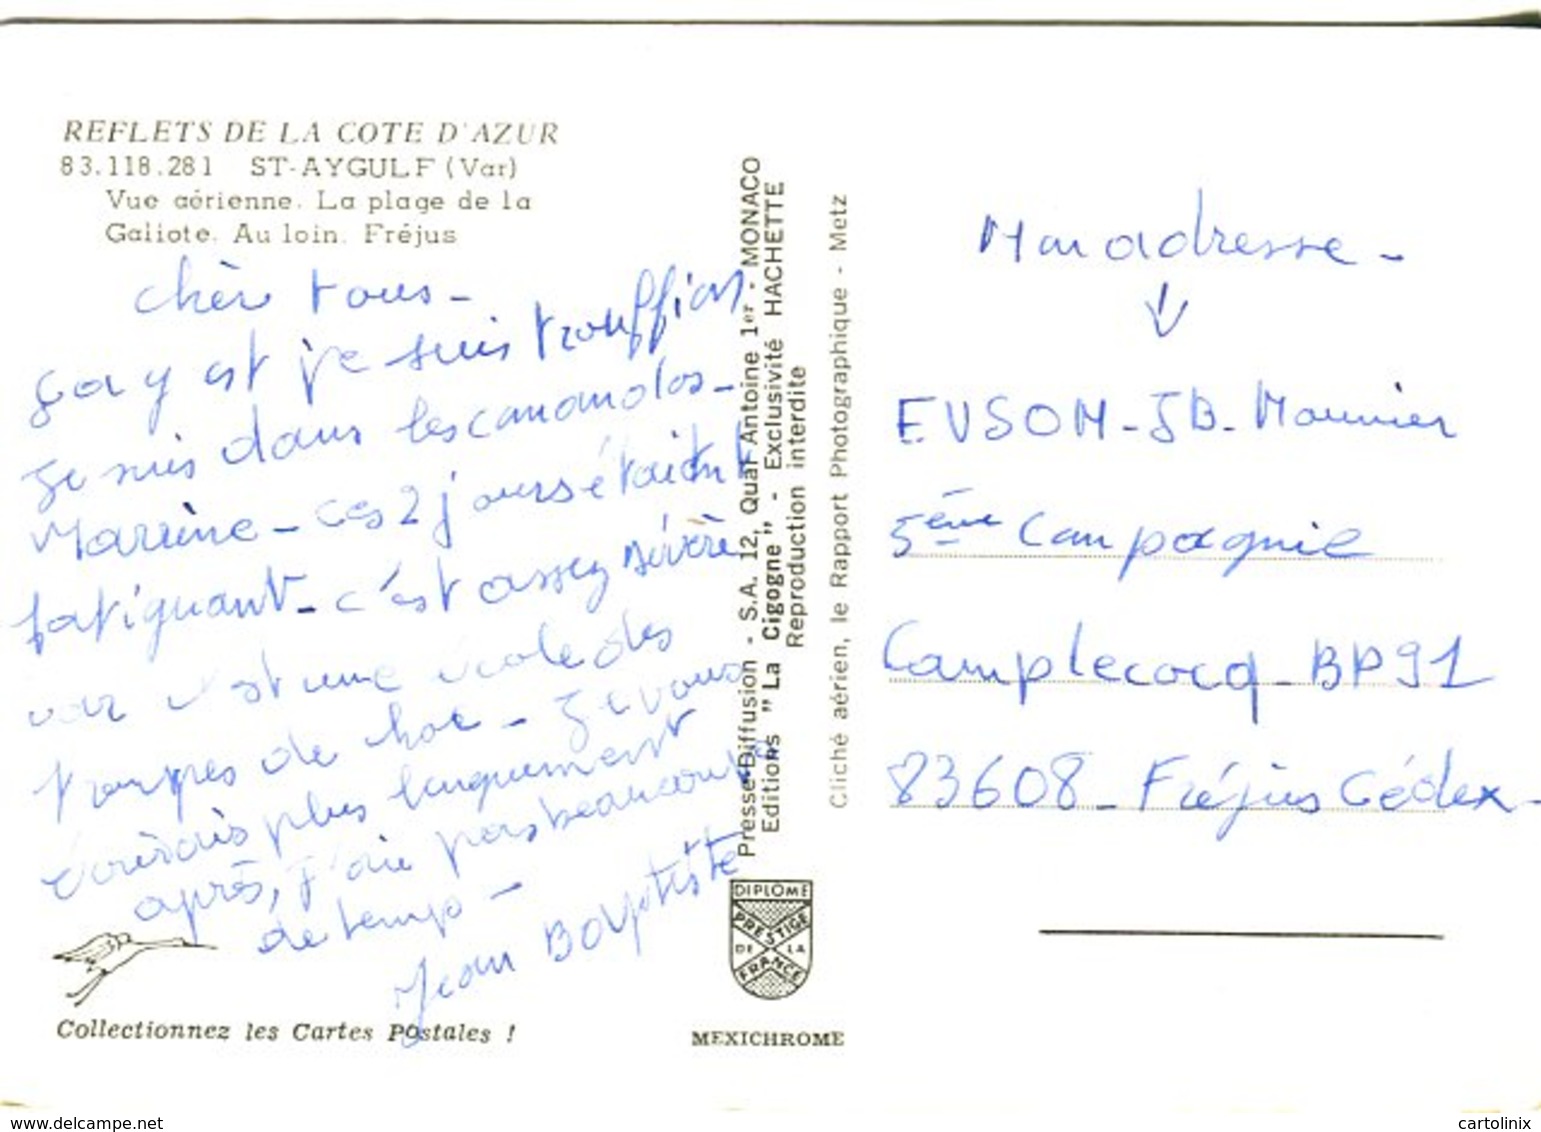 REFLETS DE LA COTE D'AZUR
83.118.281 ST-AYGULF (Var)
Vue aérienne. La plage de la
Galiote. Au loin. Fréjus
chèr tous -
ça y est je suis trouffion
Je suis dans les commandos -
Marrine - ces 2 jours étaient
fatiguant - c'est assez sévère
car c'est une école des
troupes de choc - Je vous
écrirais plus longuement
après, j'aie pas beaucoup
de temps -
Jean Baptiste
Collectionnez les Cartes Postales !
Presse-Diffusion - S.A. 12, Quai Antoine 1er - MONACO
Editions "La Cigogne" - Exclusivité HACHETTE
Reproduction interdite
Cliché aérien, le Rapport Photographique - Metz
DIPLÔME
PRESTIGE
DE LA
FRANCE
MEXICHROME
Mon adresse -
↓
EVSOM - JB - Mounier
5ème Compagnie
Camp lecocq - BP 91
83608 - Fréjus Cédex -
delcampe.net
cartolinix